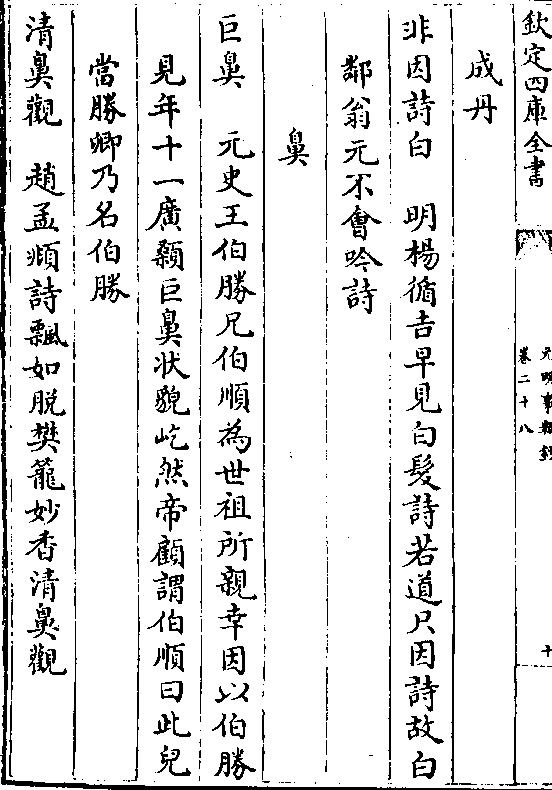 欽定四庫全書
元明事類鈔
卷二十八
十
成丹
非因詩白　明楊循吉早見白髮詩若道只因詩故白
鄰翁元不會吟詩
鼻
巨鼻　元史王伯勝兄伯順為世祖所親幸因以伯勝
見年十一廣顙巨鼻狀貌屹然帝顧謂伯順曰此兒
當勝卿乃名伯勝
清鼻觀　趙孟頫詩飄如脱樊籠妙香清鼻觀